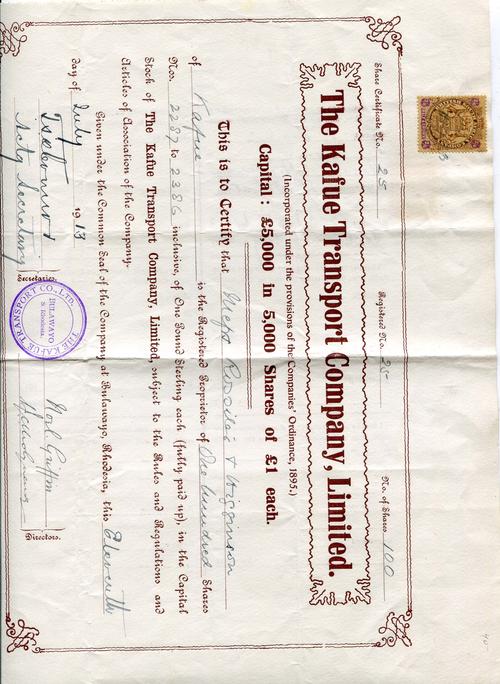 Share Certificate No. 25 Registered No. 25 No. of Shares 100
The Kafue Transport Company, Limited.
(Incorporated under the provisions of the Companies' Ordinance, 1895.)
Capital: £5,000 in 5,000 Shares of £1 each.
This is to Certify that Messrs Rossiter & Higginson
of Kafue is the Registered Proprietor of One hundred Shares
Nos. 2287 to 2386 inclusive, of One Pound Sterling each (fully paid up), in the Capital
Stock of The Kafue Transport Company, Limited, subject to the Rules and Regulations and
Articles of Association of the Company.
Given under the Common Seal of the Company at Bulawayo, Rhodesia, this Eleventh
day of July 1913
Secretaries.
Acty Secretary
THE KAFUE TRANSPORT CO., LTD.
BULAWAYO
S. Rhodesia.
Directors.